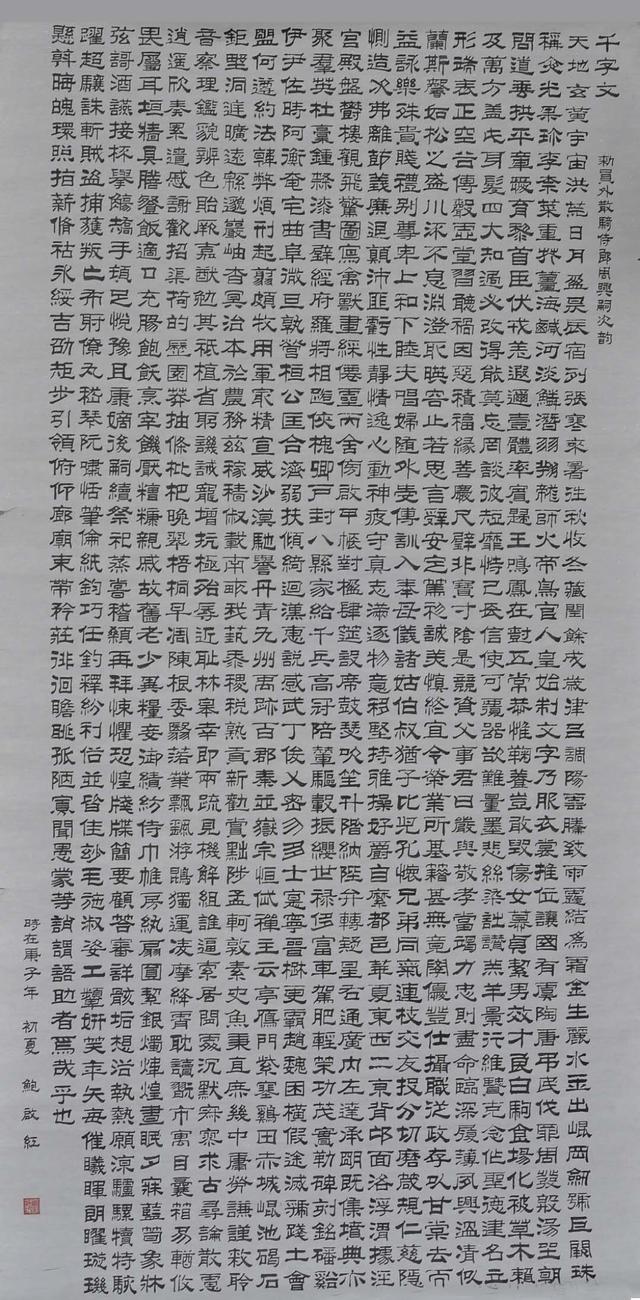 千字文
勑員外散騎侍郎周興嗣次韵
天地玄黃宇宙洪荒日月盈昃辰宿列張寒來暑往秋收冬藏閏餘成歲律呂調陽雲騰致雨露結為霜金生麗水玉出崐岡劍號巨闕珠
稱夜光果珍李柰菜重芥薑海鹹河淡鱗潛羽翔龍師火帝鳥官人皇始制文字乃服衣裳推位讓國有虞陶唐弔民伐罪周發殷湯坐朝
問道垂拱平章愛育黎首臣伏戎羌遐邇壹體率賓歸王鳴鳳在樹五常恭惟鞠養豈敢毀傷女慕貞絜男效才良白駒食場化被草木賴
及萬方蓋此身髮四大知過必改得能莫忘罔談彼短靡恃己長信使可覆器欲難量墨悲絲染詩讚羔羊景行維賢克念作聖德建名立
形端表正空谷傳聲虛堂習聽禍因惡積福緣善慶尺璧非寶寸陰是競資父事君曰嚴與敬孝當竭力忠則盡命臨深履薄夙興溫凊似
蘭斯馨如松之盛川流不息淵澄取暎容止若思言辭安定篤初誠美慎終宜令榮業所基籍甚無竟學優登仕攝職從政存以甘棠去而
益詠樂殊貴賤禮別尊卑上和下睦夫唱婦隨外受傅訓入奉母儀諸姑伯叔猶子比兒孔懷兄弟同氣連枝交友投分切磨箴規仁慈隱
惻造次弗離節義廉退顛沛匪虧性靜情逸心動神疲守真志滿逐物意移堅持雅操好爵自縻都邑華夏東西二京背邙面洛浮渭據涇
宮殿盤鬱樓觀飛驚圖寫禽獸畫綵僊靈丙舍傍啟甲帳對楹肆筵設席鼓瑟吹笙升階納陛弁轉疑星右通廣內左達承明既集墳典亦
聚羣英杜稾鍾隸漆書壁經府羅將相路俠槐卿戶封八縣家給千兵高冠陪輦驅轂振纓世祿侈富車駕肥輕策功茂實勒碑刻銘磻谿
伊尹佐時阿衡奄宅曲阜微旦孰營桓公匡合濟弱扶傾綺迴漢惠說感武丁俊乂密勿多士寔寧晉楚更霸趙魏困橫假途滅虢踐土會
盟何遵約法韓弊煩刑起翦頗牧用軍最精宣威沙漠馳譽丹青九州禹跡百郡秦並嶽宗恒岱禪主云亭鴈門紫塞雞田赤城崐池碣石
鉅野洞庭曠遠緜邈巖岫杳冥治本於農務茲稼穡俶載南畝我藝黍稷稅熟貢新勸賞黜陟孟軻敦素史魚秉直庶幾中庸勞謙謹敕聆
音察理鑑貌辨色貽厥嘉猷勉其祗植省躬譏誡寵增抗極殆辱近恥林皋幸即兩疏見機解組誰逼索居閑處沉默寂寥求古尋論散慮
逍遙欣奏累遣慼謝歡招渠荷的歷園莽抽條枇杷晚翠梧桐早凋陳根委翳落葉飄颻游鵾獨運凌摩絳霄耽讀翫市寓目囊箱易輶攸
畏屬耳垣牆具膳餐飯適口充腸飽飫烹宰饑厭糟糠親戚故舊老少異糧妾御績紡侍巾帷房紈扇圓絜銀燭煒煌晝眠夕寐藍筍象牀
弦歌酒讌接杯舉觴矯手頓足悅豫且康嫡後嗣續祭祀蒸嘗稽顙再拜悚懼恐惶牋牒簡要顧答審詳骸垢想浴執熱願涼驢騾犢特駭
躍超驤誅斬賊盜捕獲叛亡布射僚丸嵇琴阮嘯恬筆倫紙鈞巧任釣釋紛利俗並皆佳妙毛施淑姿工顰妍笑年矢每催曦暉朗曜璇璣
懸斡晦魄環照指薪脩祜永綏吉劭矩步引領俯仰廊廟束帶矜莊徘徊瞻眺孤陋寡聞愚蒙等誚謂語助者焉哉乎也
時在庚子年 初夏 鮑啟紅